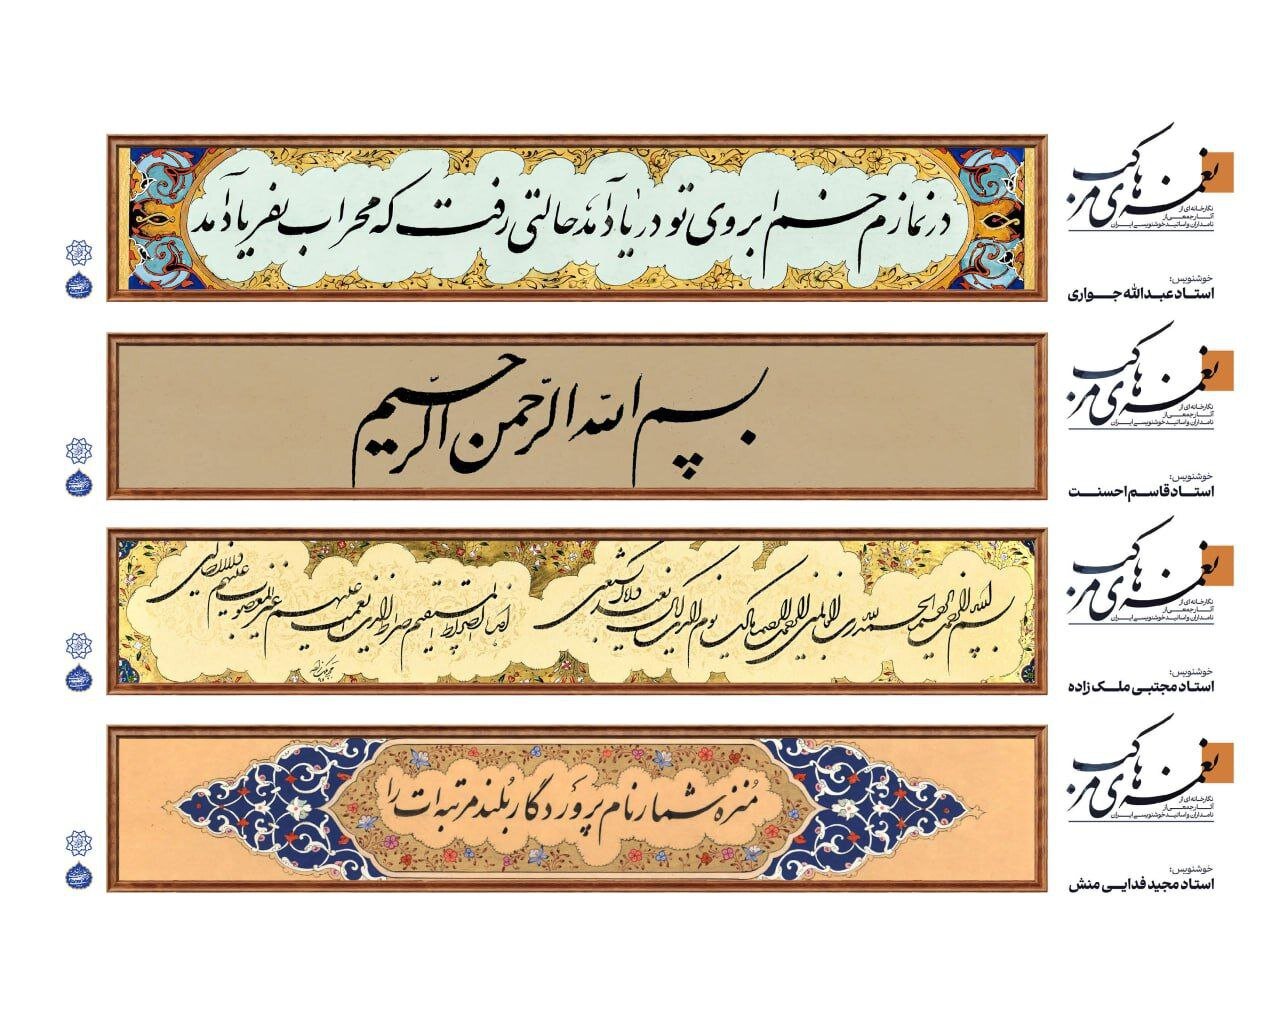 در نمازم خم ابروی تو در یاد آمد حالتی رفت که محراب بفریاد آمد
نغمه‌های مرکب
نگارخانه‌ای از
آثار جمعی از
نامداران و اساتید خوشنویسی ایران
خوشنویس:
استاد عبدالله جواری
بسم الله الرحمن الرحیم
نغمه‌های مرکب
نگارخانه‌ای از
آثار جمعی از
نامداران و اساتید خوشنویسی ایران
خوشنویس:
استاد قاسم احسنت
بسم الله الرحمن الرحیم الحمد لله رب العالمین الرحمن الرحیم مالک یوم الدین ایاک نعبد و ایاک نستعین
اهدنا الصراط المستقیم صراط الذین انعمت علیهم غیر المغضوب علیهم ولا الضالین
نغمه‌های مرکب
نگارخانه‌ای از
آثار جمعی از
نامداران و اساتید خوشنویسی ایران
خوشنویس:
استاد مجتبی ملک زاده
مُنزه شمار نام پروَردگار بُلند مرتبه‌ات را
نغمه‌های مرکب
نگارخانه‌ای از
آثار جمعی از
نامداران و اساتید خوشنویسی ایران
خوشنویس:
استاد مجید فدایی منش